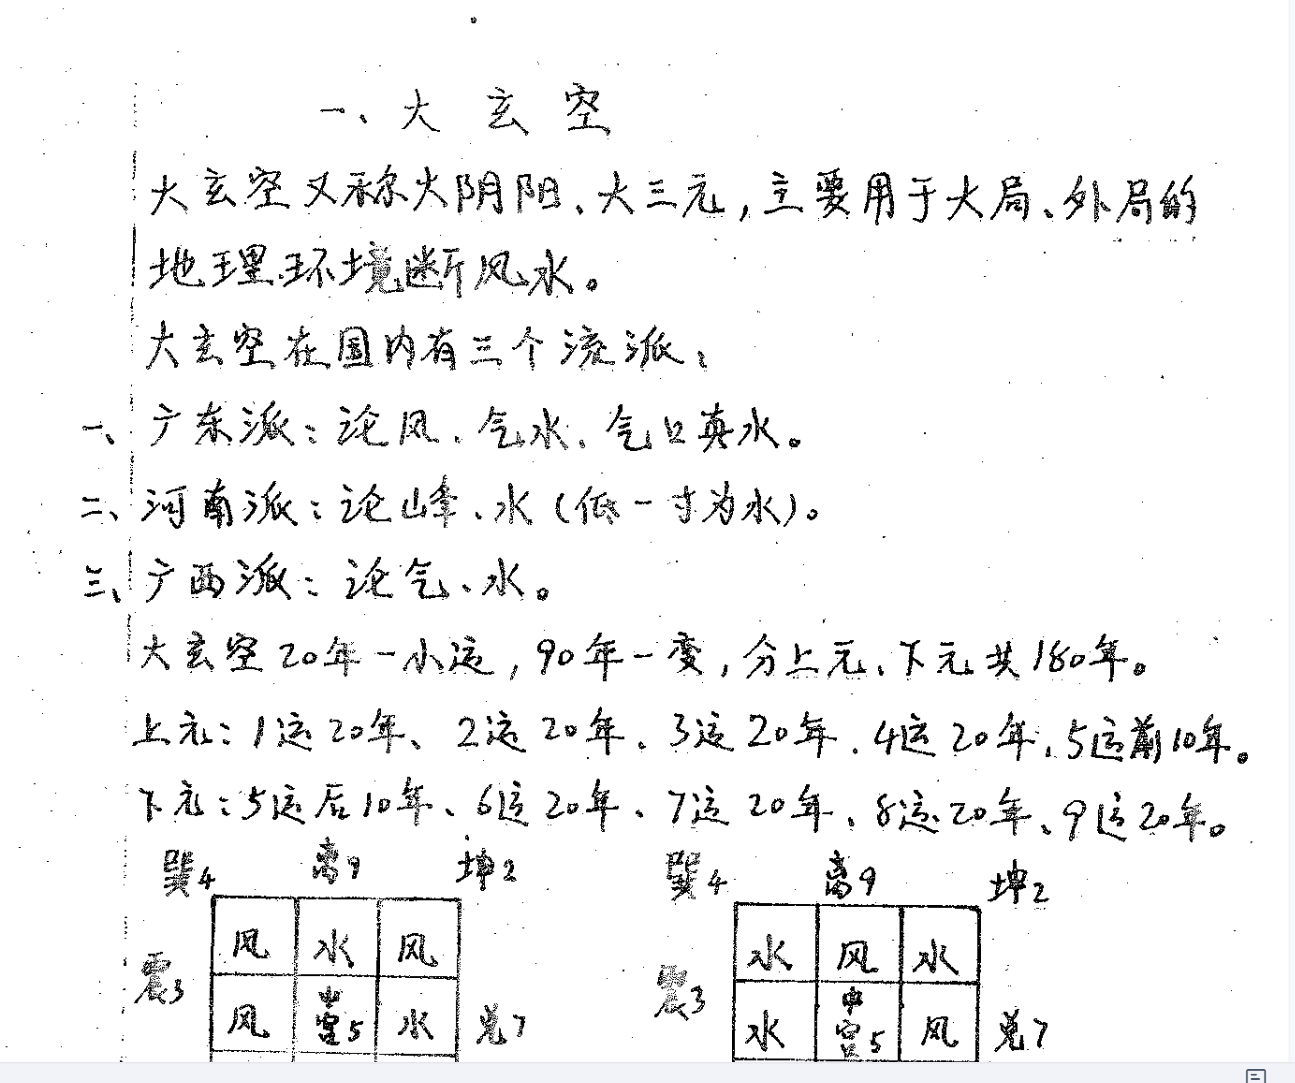 一、大玄空
大玄空又称大阴阳、大三元，主要用于大局、外局的
地理环境断风水。
大玄空在国内有三个流派：
一、广东派：论风、气水、气口真水。
二、河南派：论山峰、水（低一寸为水）。
三、广西派：论气、水。
大玄空20年一小运，90年一变，分上元、下元共180年。
上元：1运20年、2运20年、3运20年、4运20年、5运前10年。
下元：5运后10年、6运20年、7运20年、8运20年、9运20年。
巽4 离9 坤2 巽4 离9 坤2
风 水 风 水 风 水
震3 风 中宫5 水 兑7 震3 水 中宫5 风 兑7